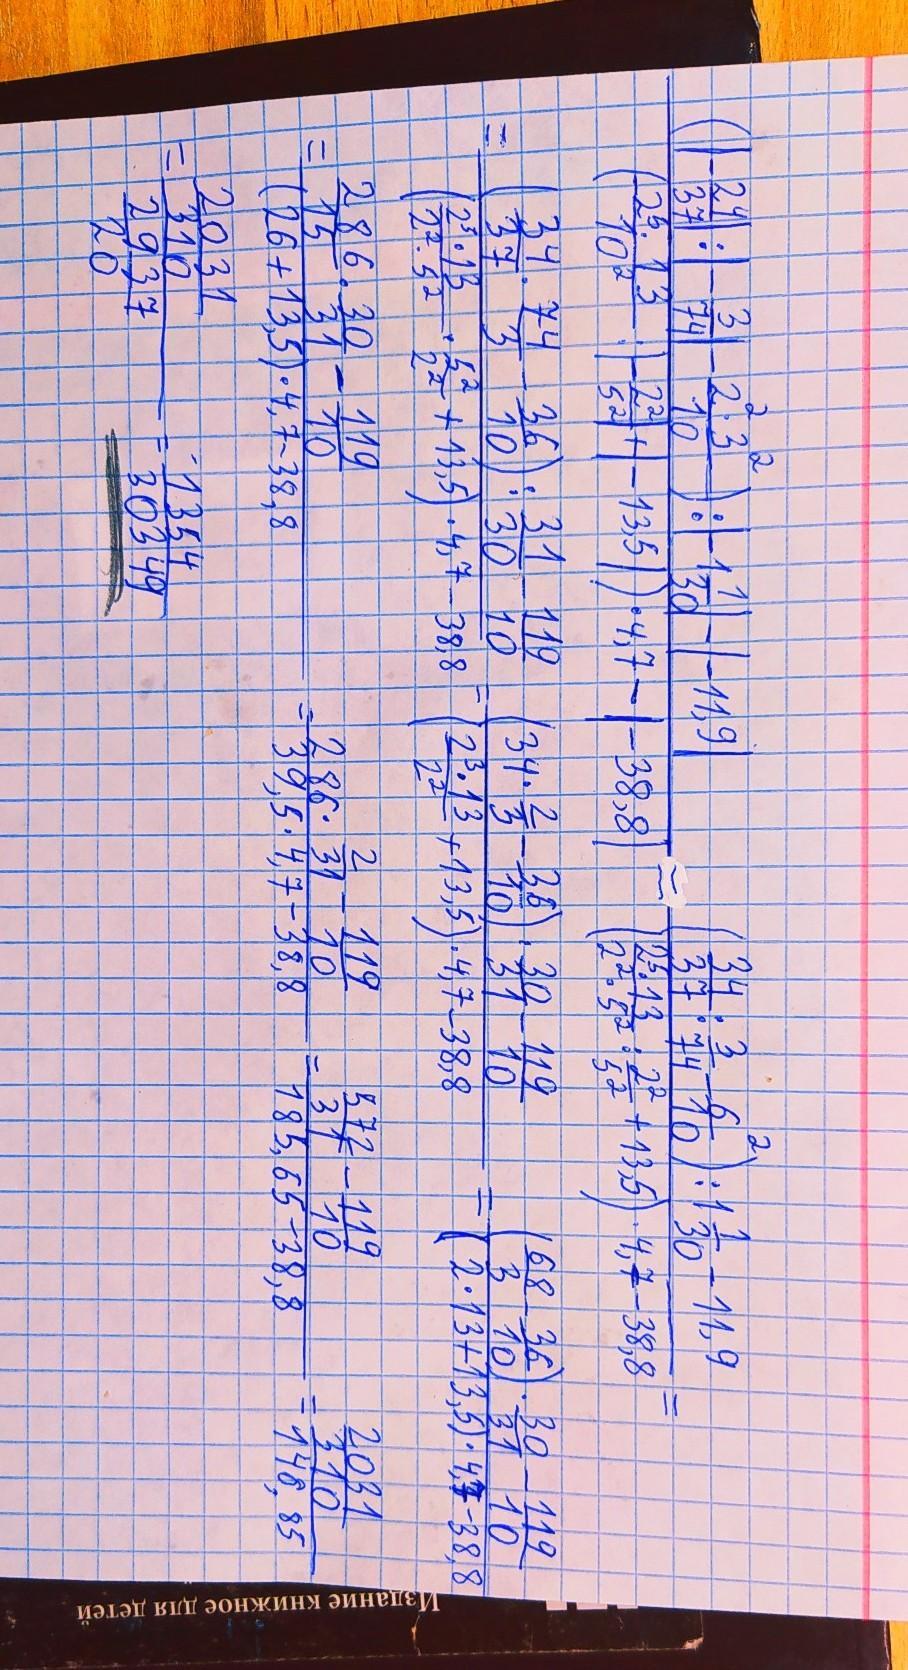 (|-24/37| : |-3/74| - 2²·3²/10) : |-1 1/30| - |-11,9|
(2⁵·13/10² : |-2²/5²| + |-13,5|)·4,7 - |-38,8|
≈
(34/37 : 3/74 - 6²/10) : 1 1/30 - 11,9
(2⁵·13/2²·5² : 2²/5² + 13,5)·4,7 - 38,8
=
= (34/37 · 74/3 - 36/10) : 31/30 - 119/10
(2⁵·13/2²·5² · 5²/2² + 13,5)·4,7 - 38,8
=
(34 · 2/3 - 36/10) · 30/31 - 119/10
(2³·13/2² + 13,5)·4,7 - 38,8
=
(68/3 - 36/10) · 30/31 - 119/10
(2·13 + 13,5)·4,7 - 38,8
= 286/15 · 30/31 - 119/10
(26 + 13,5)·4,7 - 38,8
=
286 · 2/31 - 119/10
39,5·4,7 - 38,8
=
572/31 - 119/10
185,65 - 38,8
=
2031/310
146,85
= 2031/310
2937/20
=
1354
30349
Издание книжное для детей